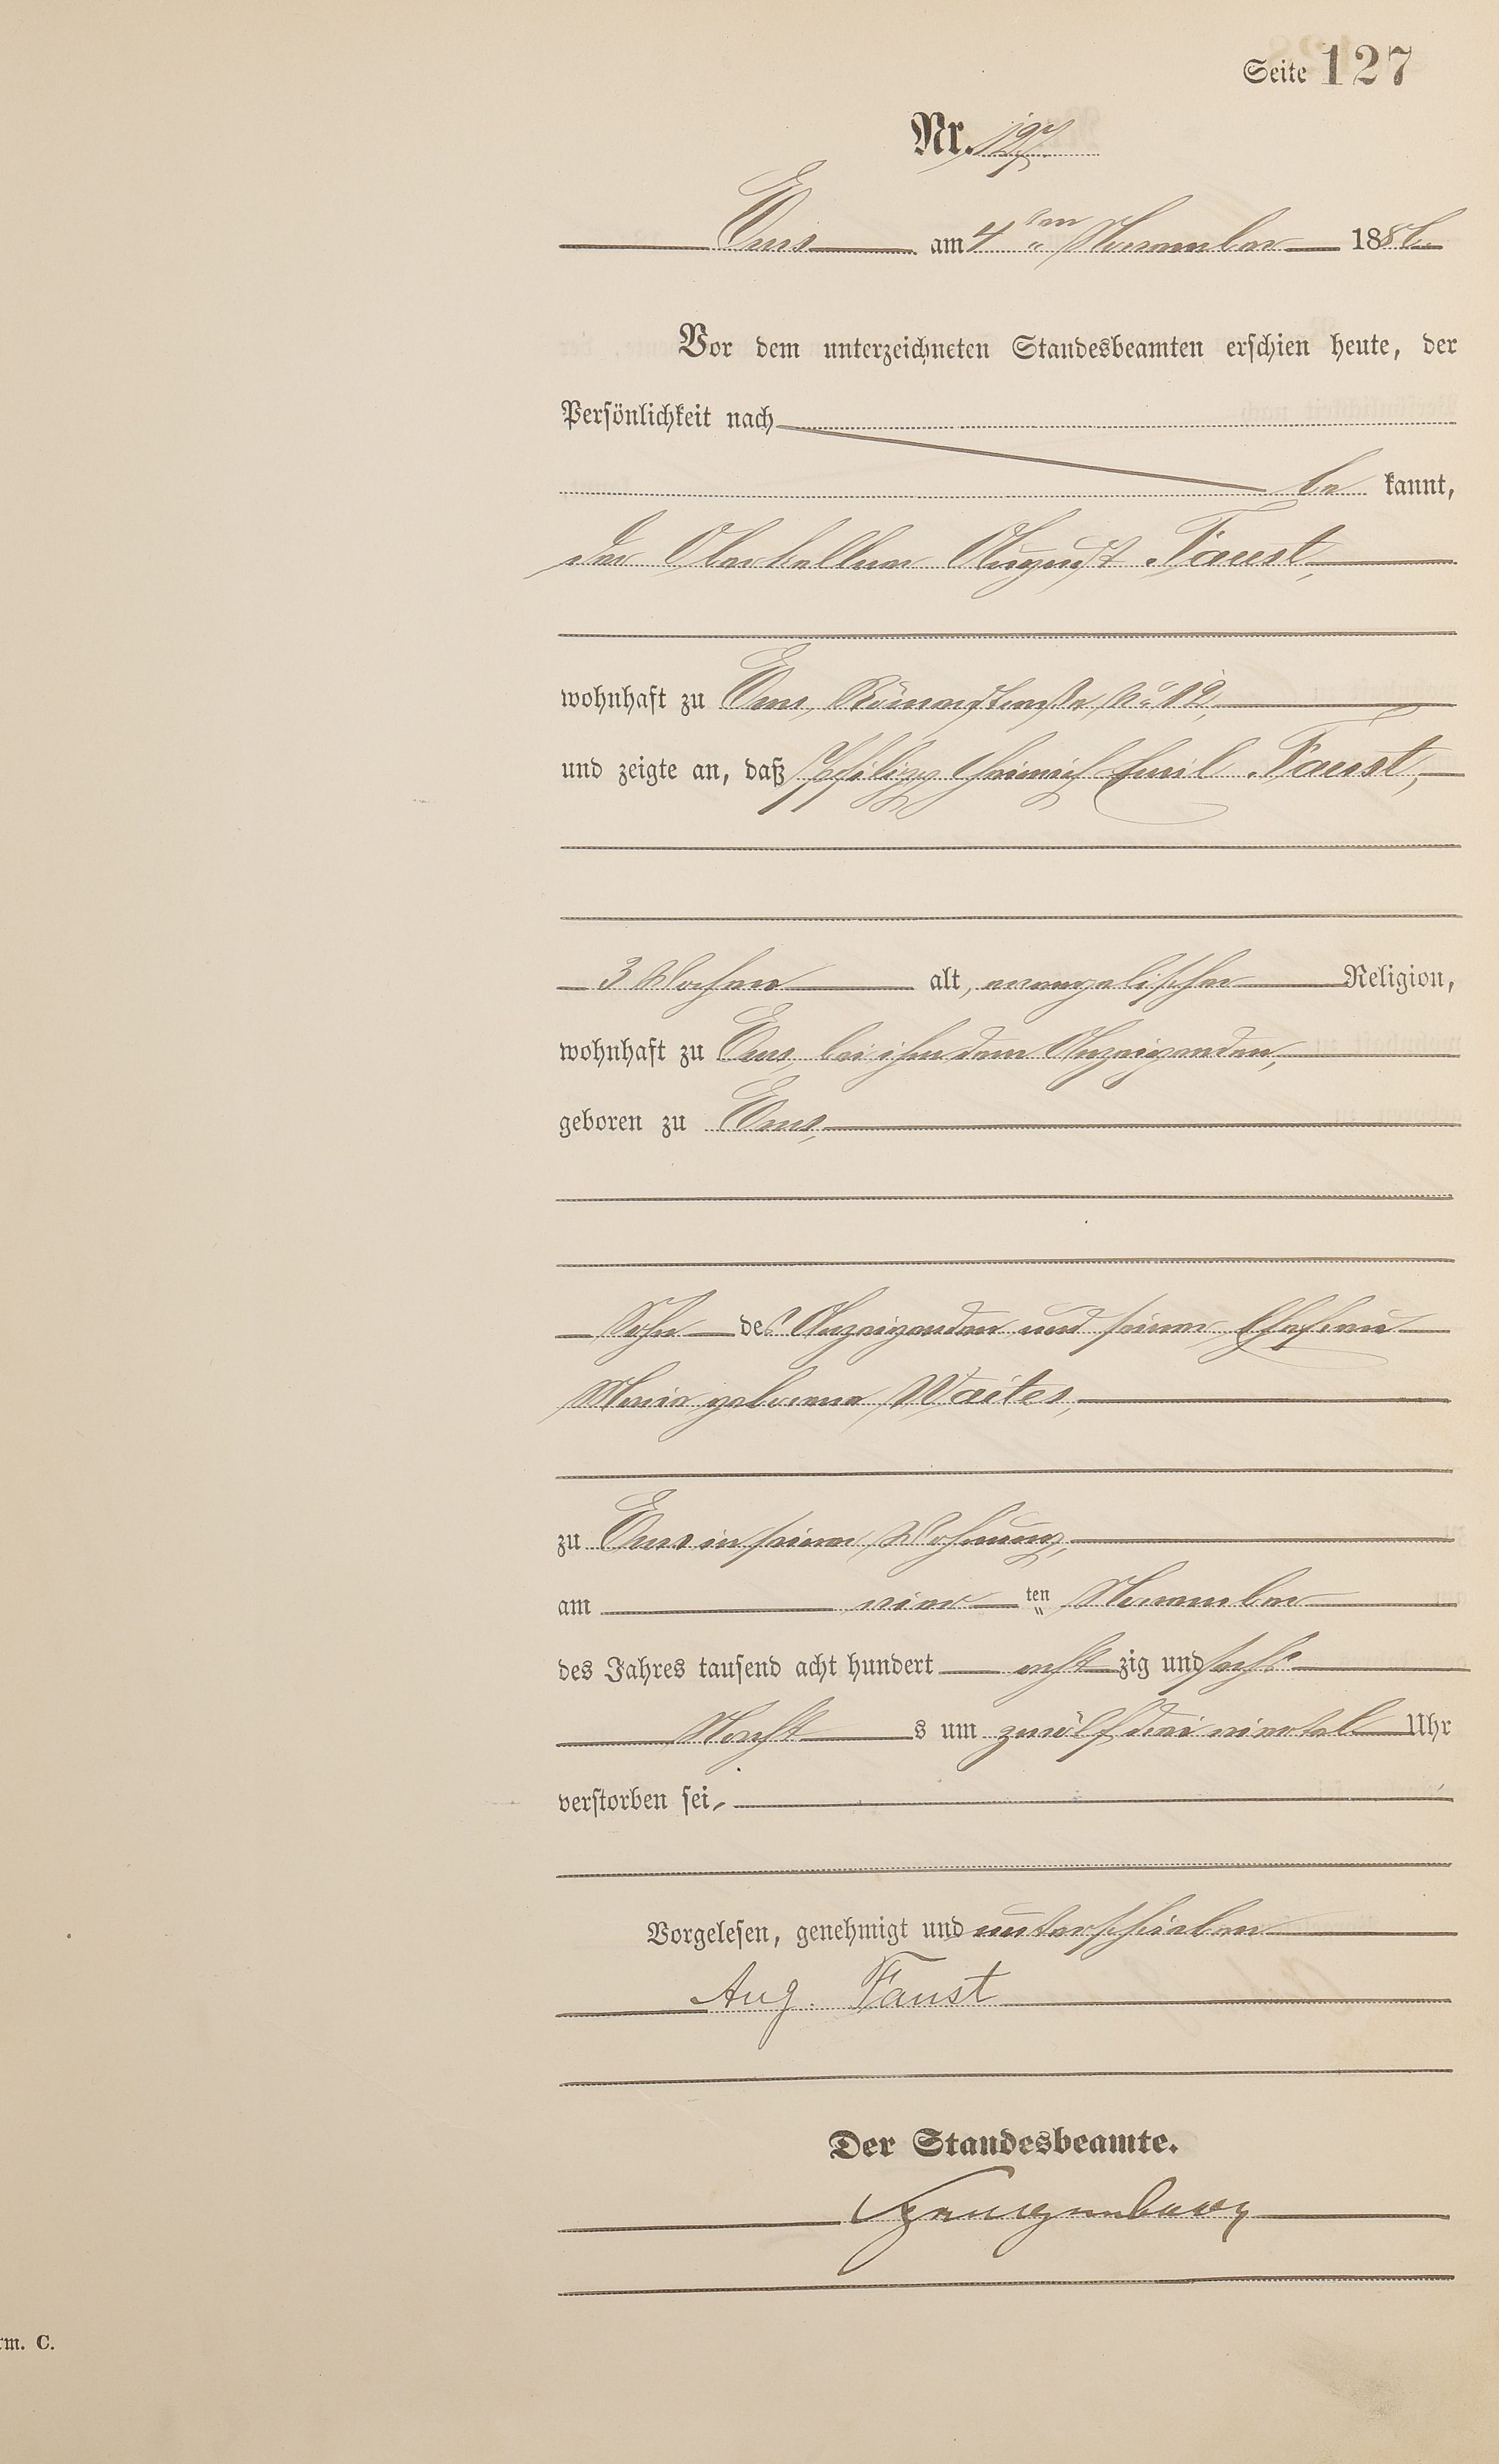 Seite 127
Nr. 127.
Ems am 4ten November 1886.
Vor dem unterzeichneten Standesbeamten erschien heute, der
Persönlichkeit nach
be kannt,
der Oberkellner August Faust,
wohnhaft zu Ems, Römerstraße No 12,
und zeigte an, daß Philipp Heinrich Emil Faust,
3 Wochen alt, evangelischer Religion,
wohnhaft zu Ems, bei ihm dem Anzeigenden,
geboren zu Ems,
Sohn des Anzeigenden und seiner Ehefrau
Maria geborene Waites,
zu Ems in seiner Wohnung,
am vier ten November
des Jahres tausend acht hundert acht zig und sechs
Nacht s um zwölf drei viertel Uhr
verstorben sei.
Vorgelesen, genehmigt und unterschrieben
Aug. Faust
Der Standesbeamte.
rm. C.